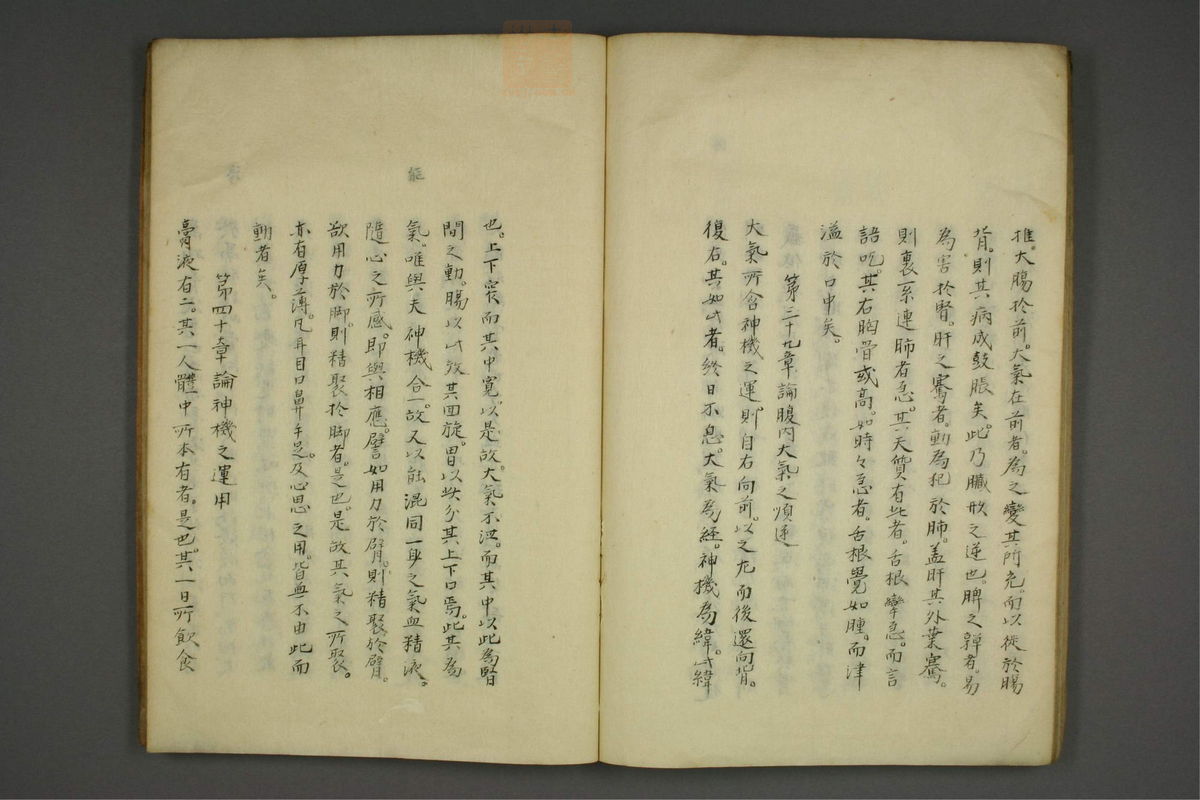 推。大腸於前。大氣在前者。為之變其所充。而以從於腸
背。則其病成鼓脹矣。此乃臟形之逆也。脾之　者。易
為害於腎。肝之騫者。動為犯於肺。蓋肝其外葉騫。
則裏系連肺者急。其天質有此者。舌根攣急。而言
語吃。其右胸骨或高。如時々急者。舌根覺如腫。而津
溢於口中矣。
第三十九章論腹內大氣之順逆
大氣所含神機之運。則自右向前。以之左而後還向背。
復右。其如此者。終日不息。大氣為經。神機為緯。此緯
也。上下窄而其中寬。以是故。大氣不泄。而其中以此為腎
間之動。腸以此效其回旋。胃以此分其上下口焉。此其為
氣。唯與夫神機合一。故又以能混同一身之氣血精液。
隨心之所感。即與相應。譬如用力於臂。則精聚於臂。
欲用力於脚。則精聚於脚者。是也。是故其氣之所聚。
亦有厚薄。凡耳目口鼻手足。及心思之用。皆無不由此而
動者矣。
第四十章論神機之運用
膏液有二。其一人體中所本有者。是也。其一日所飲食